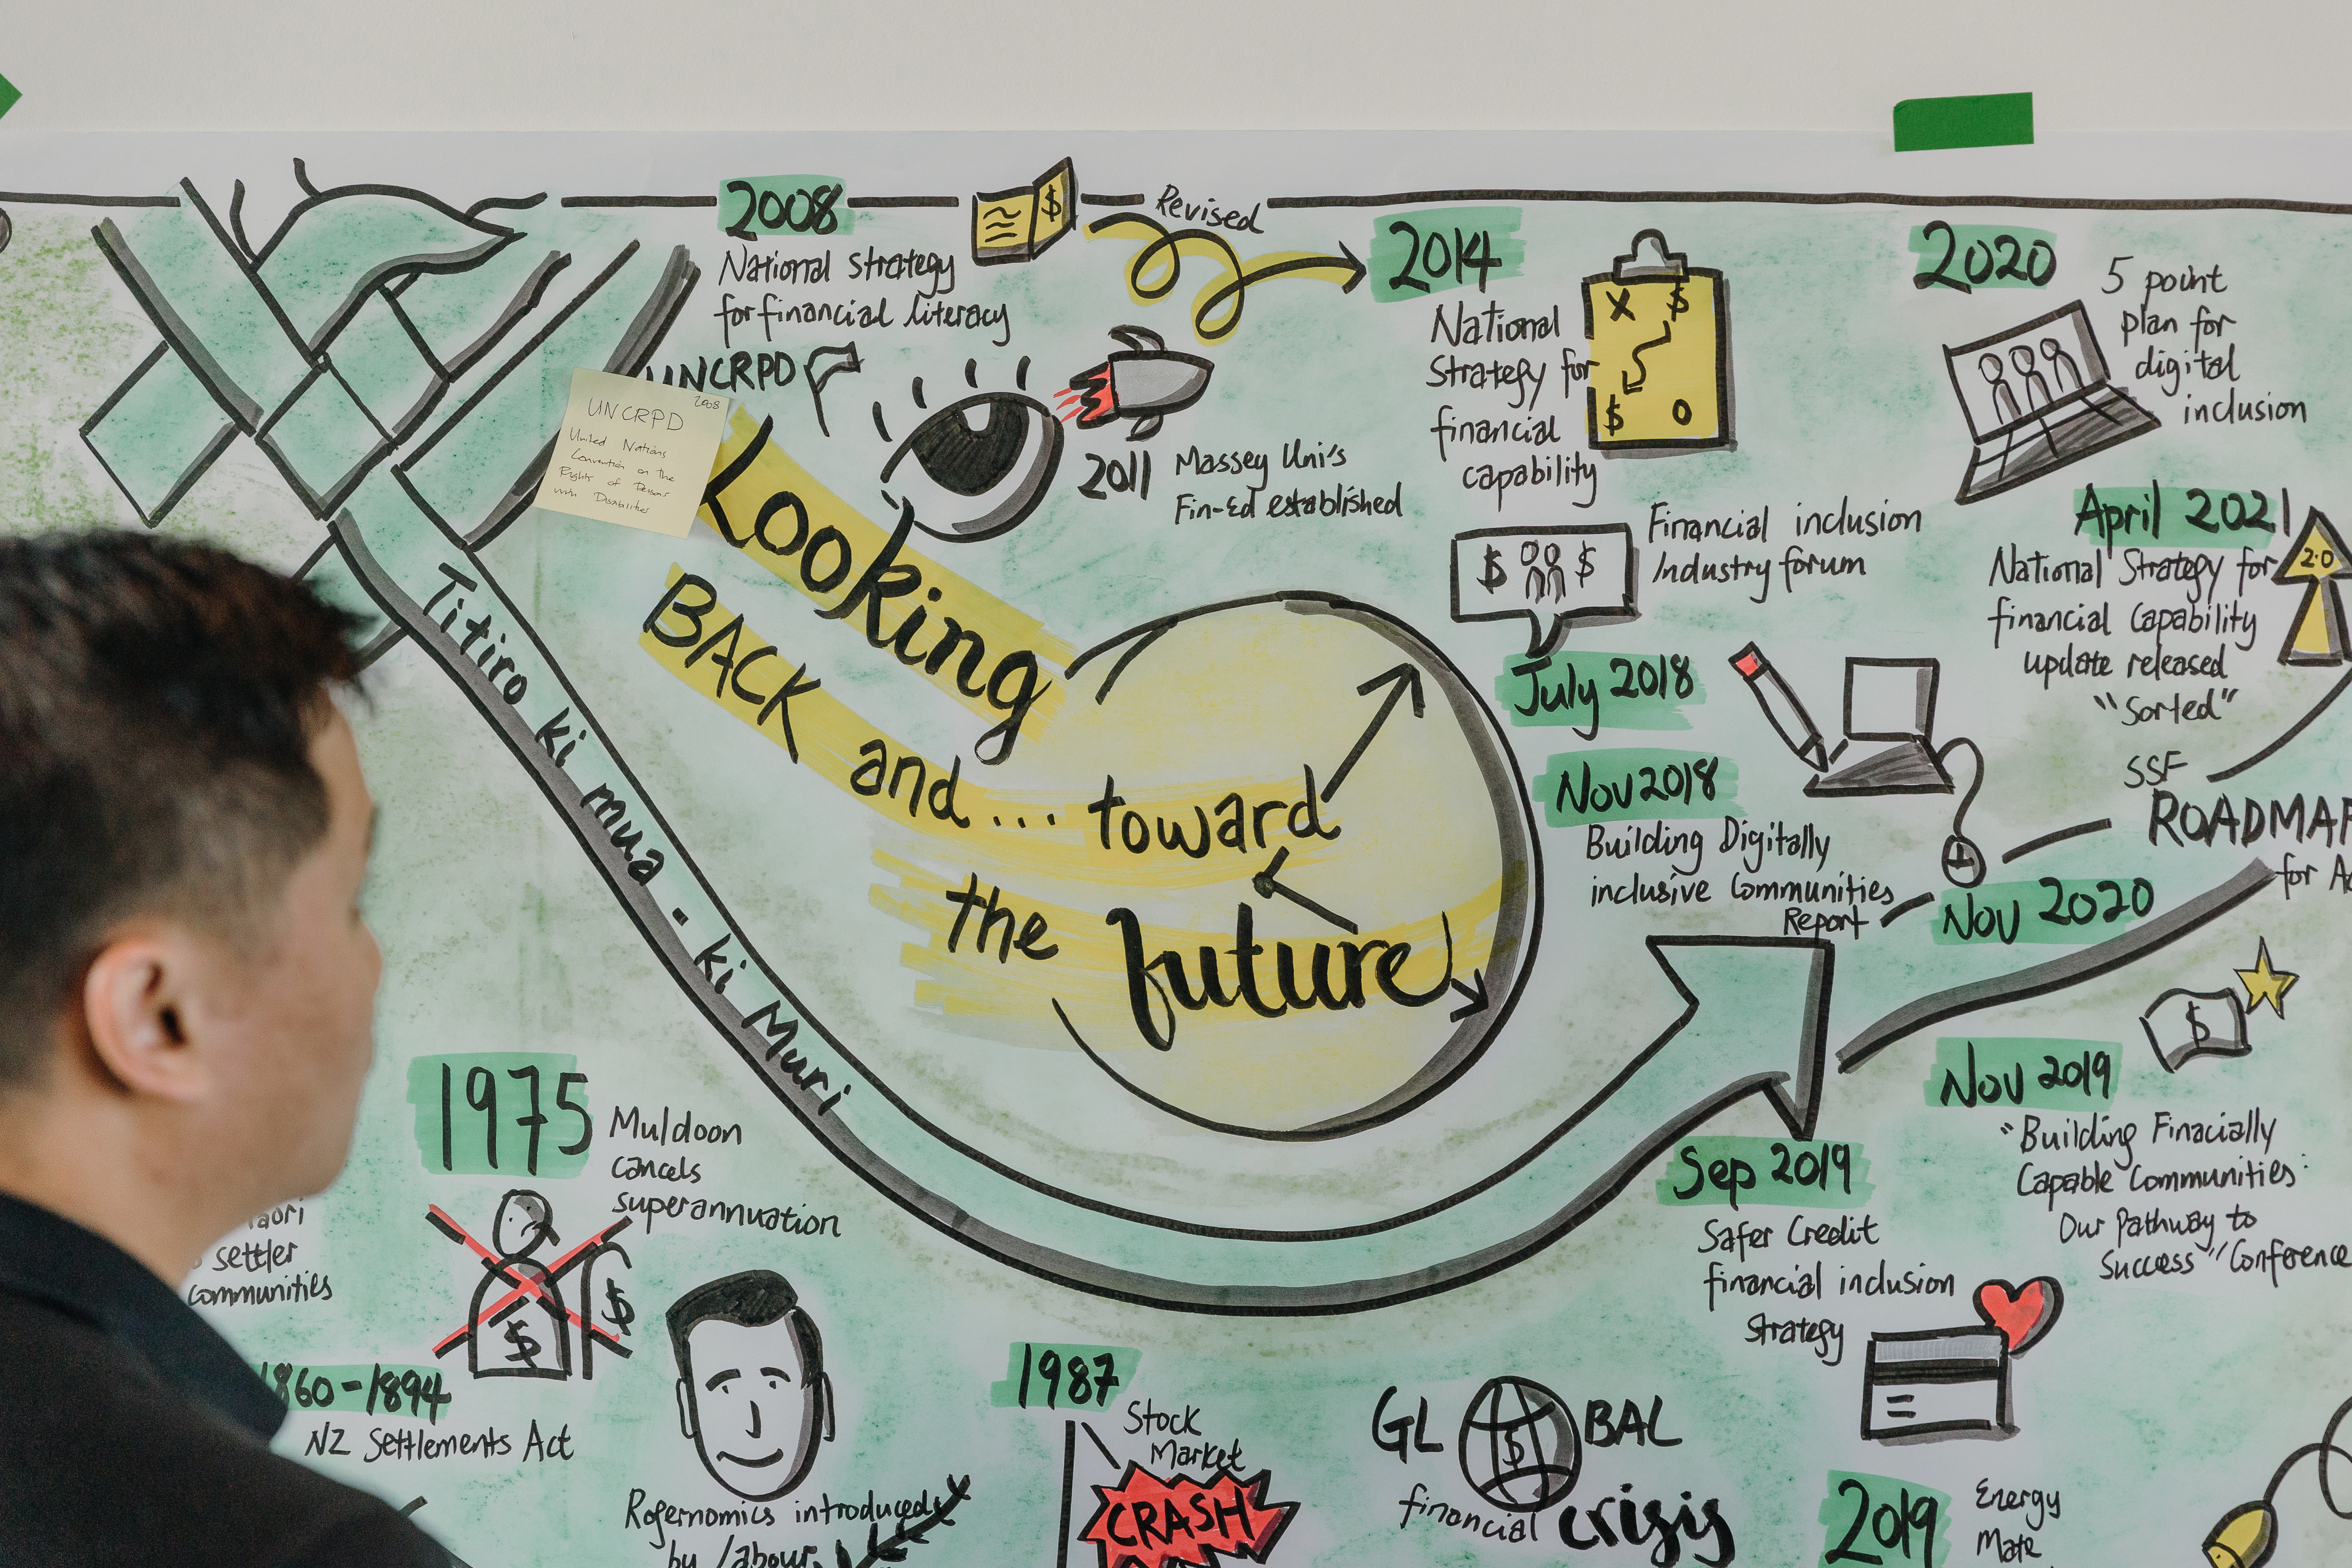 2008
National strategy
for financial literacy
Revised
UNCRPD
2008
UNCRPD
United Nations
Convention on the
Rights of Persons
with Disabilities
2011
Massey Uni's
Fin-Ed established
2014
National
Strategy for
financial
capability
2020
5 point
plan for
digital
inclusion
Financial inclusion
Industry forum
July 2018
Nov 2018
Building Digitally
inclusive Communities
Report
April 2021
2.0
National Strategy for
financial Capability
update released
"Sorted"
SSF
ROADMAP
for
Nov 2020
Looking
BACK and... toward
the future
Titiro ki mua - ki Muri
Nov 2019
"Building Finacially
Capable Communities:
Our Pathway to
Success" Conference
Sep 2019
Safer Credit
financial inclusion
Strategy
1975
Muldoon
cancels
superannuation
settler
communities
1860-1894
NZ Settlements Act
Rogernomics introduced
by Labour
1987
Stock
Market
CRASH
GLOBAL
financial crisis
2019
Energy
Mate